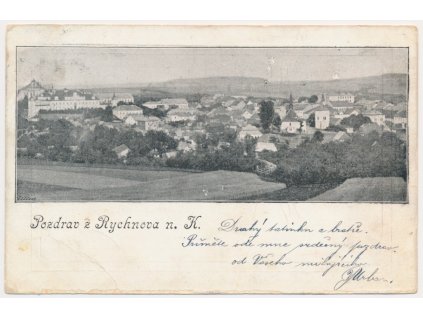 Pozdrav z Rychnova n. K.
Drahý tatínku a bratře.
Přijměte ode mne srdečný pozdrav
od Vašeho milujícího